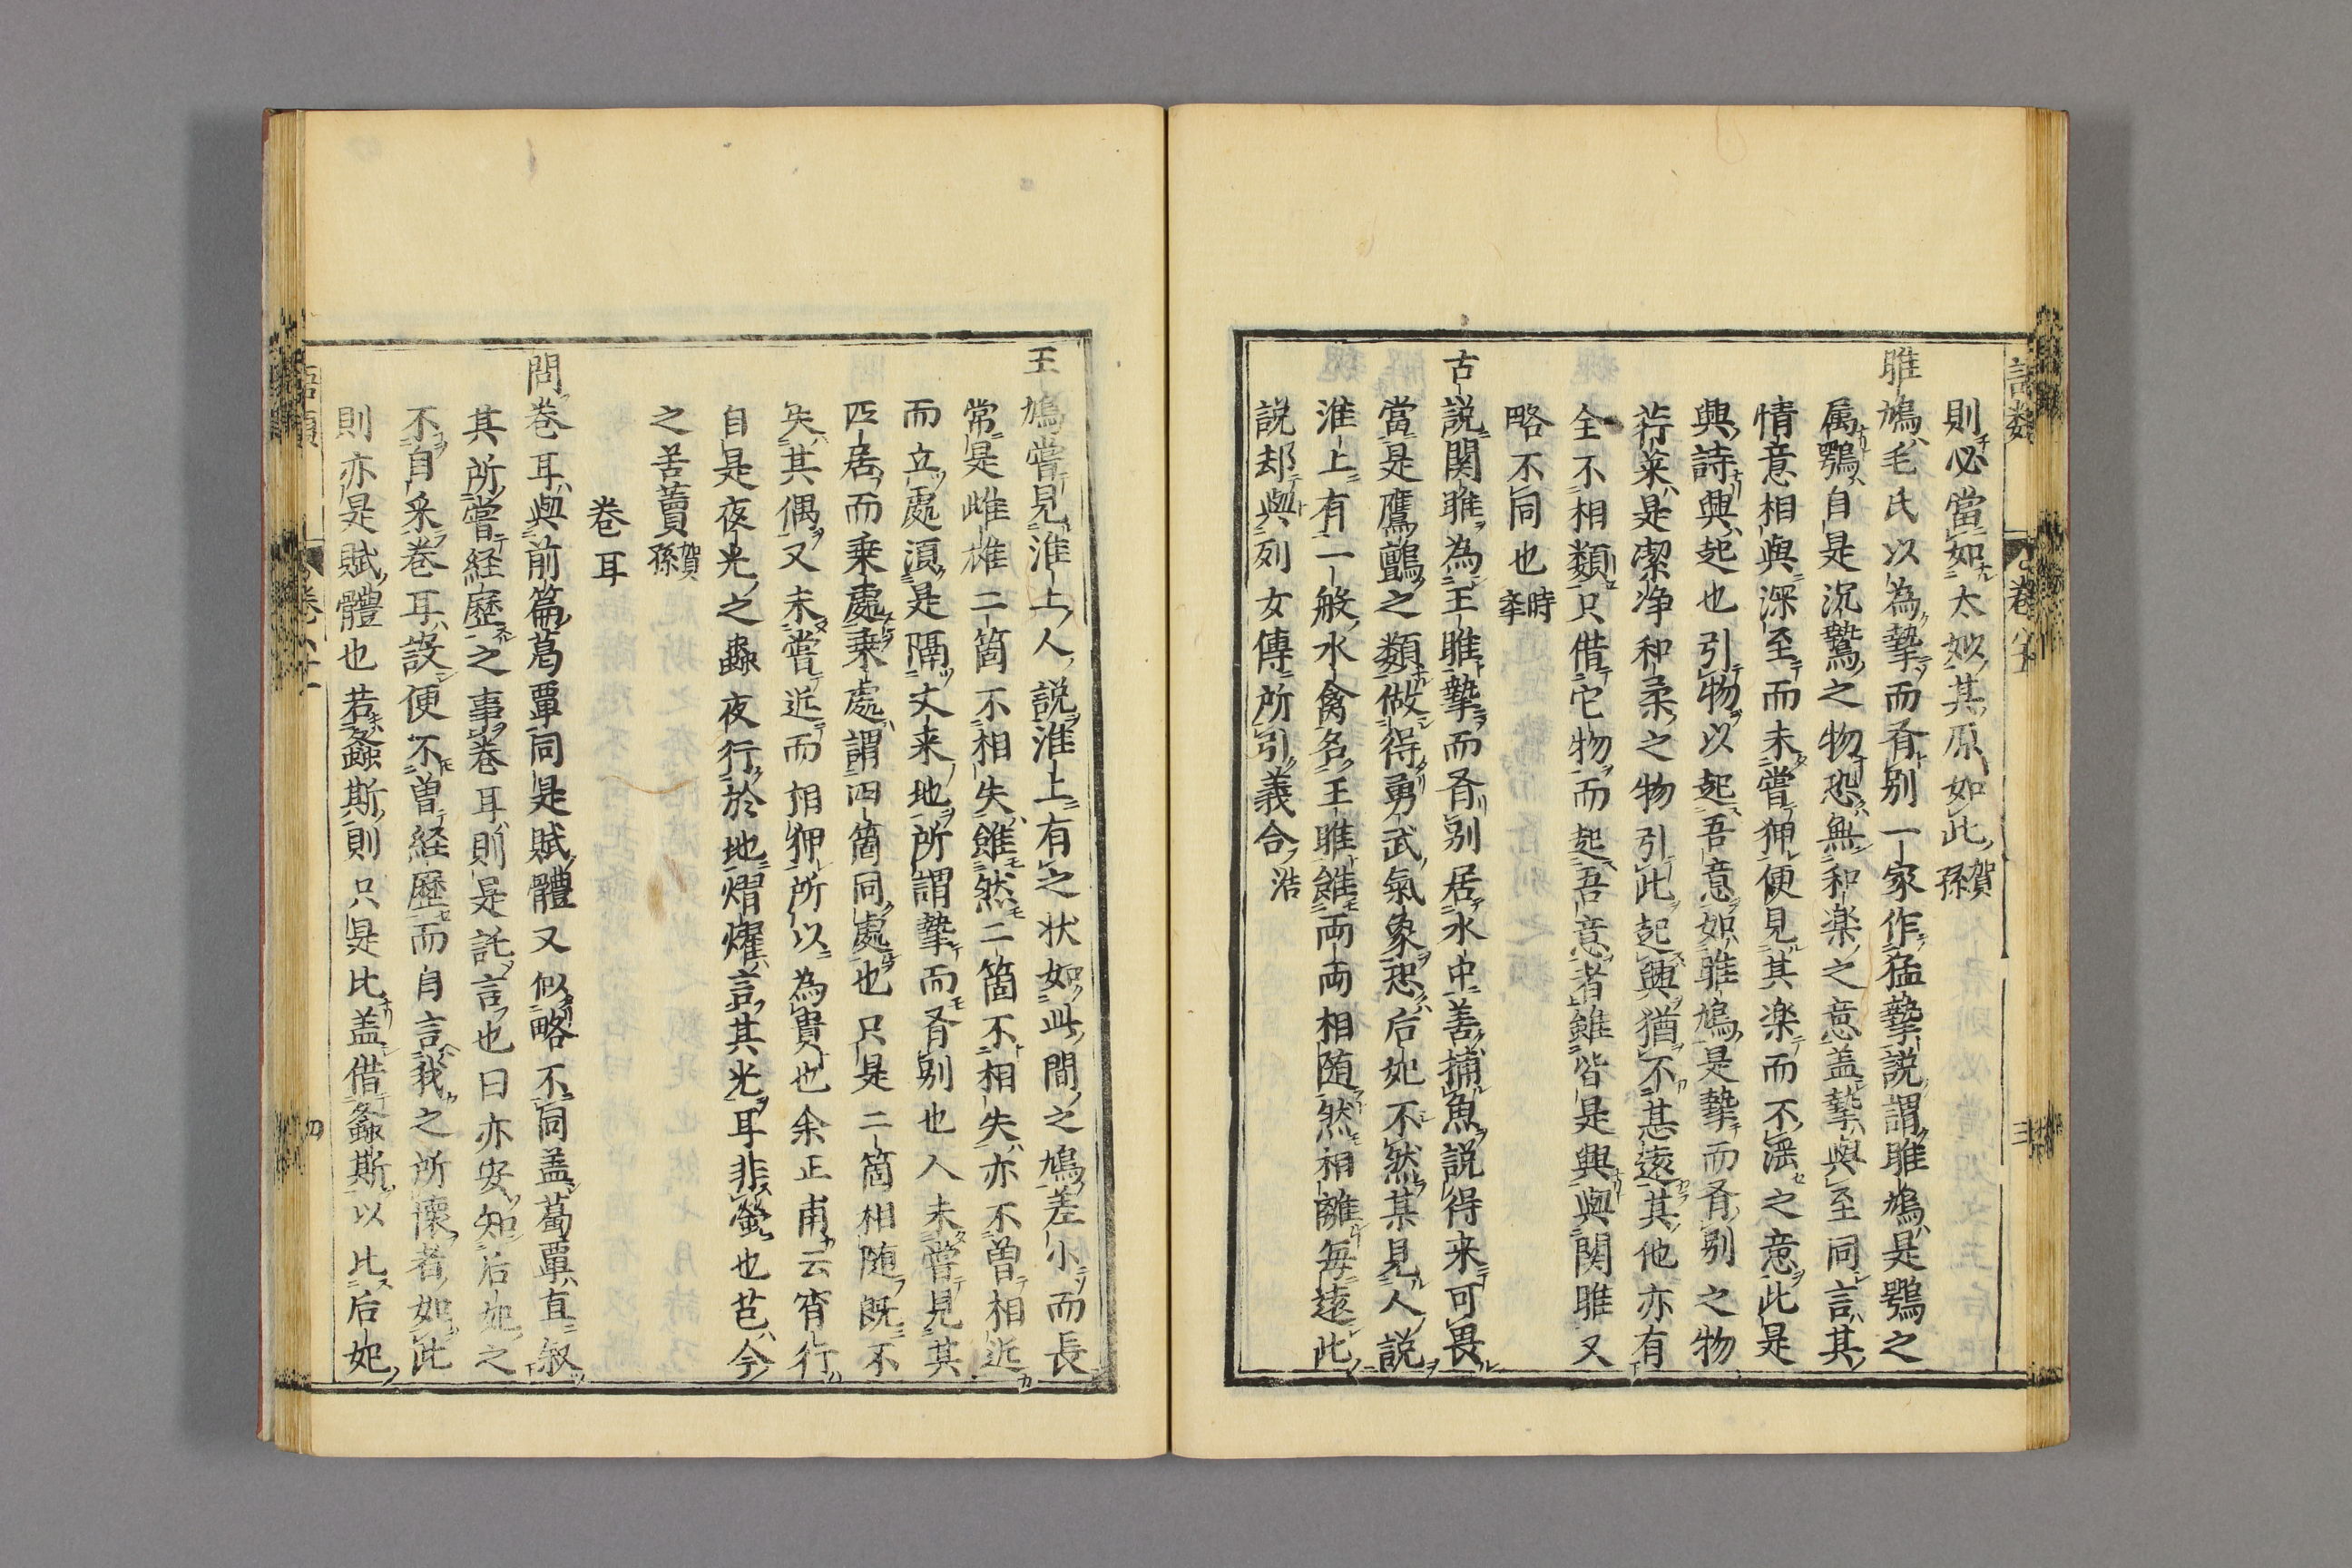 語類 卷八十一 三
則必當如太姒其原如此賀孫
雎鳩毛氏以為摯而有别一家作猛摯説謂雎鳩是鶚之
属鶚自是沉鷙之物恐無和楽之意盖摯與至同言其
情意相與深至而未嘗狎便見其楽而不滛之意此是
興詩興起也引物以起吾意如雎鳩是摯而有别之物
荇菜是潔浄和柔之物引此起興猶不甚遠其他亦有
全不相類只借它物而起吾意者雖皆是興與関雎又
略不同也時舉
古説関雎為王雎摯而有别居水中善捕魚説得来可畏
當是鷹鸇之類做得勇武氣象恐后妃不然某見人説
淮上有一般水禽名王雎雖両両相随然相離每遠此
説却與列女傳所引義合浩
王鳩嘗見淮上人説淮上有之状如此間之鳩差小而長
常是雌雄二箇不相失雖然二箇不相失亦不曽相近
而立處須是隔丈来地所謂摯而有别也人未嘗見其
匹居而乗處乗處謂四箇同處也只是二箇相随既不
失其偶又未嘗近而相狎所以為貴也余正甫云宵行
自是夜光之蟲夜行於地熠燿言其光耳非螢也芑今
之苦蕒賀孫
卷耳
問卷耳與前篇葛覃同是賦體又似略不同盖葛覃直叙
其所嘗経歴之事卷耳則是託言也曰亦安知后妃之
不自采卷耳設便不曽経歴而自言我之所懷者如此
則亦是賦體也若螽斯則只是比盖借螽斯以比后妃
語類 卷八十一 四